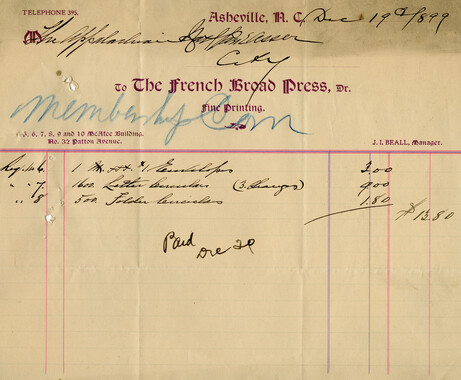 TELEPHONE 395.
Asheville, N. C., Dec 19th 1899
M The Appalachian
City
To The French Broad Press, Dr.
Fine Printing.
Membership Com
5, 6, 7, 8, 9 and 10 McAfee Building.
No. 32 Patton Avenue.
J. I. BEALL, Manager.
1 M. #1 Envelopes 3.00
" 7 1600 Letter Circulars (3 Changes) 9.00
" 8 500 Folder Circulars 1.80
$13.80
Paid
Dec 20